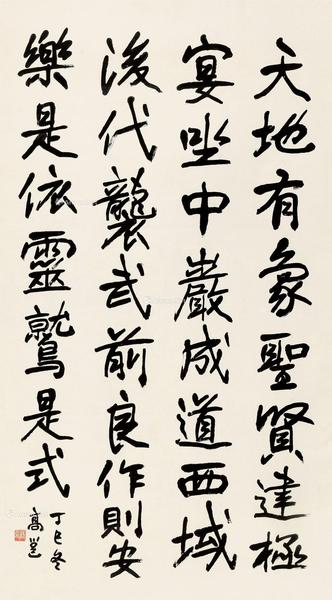 天地有象聖賢達極
宴坐中巖成道西域
後代襲武前良作則安
樂是依靈鷲是式
丁巳冬
高邕